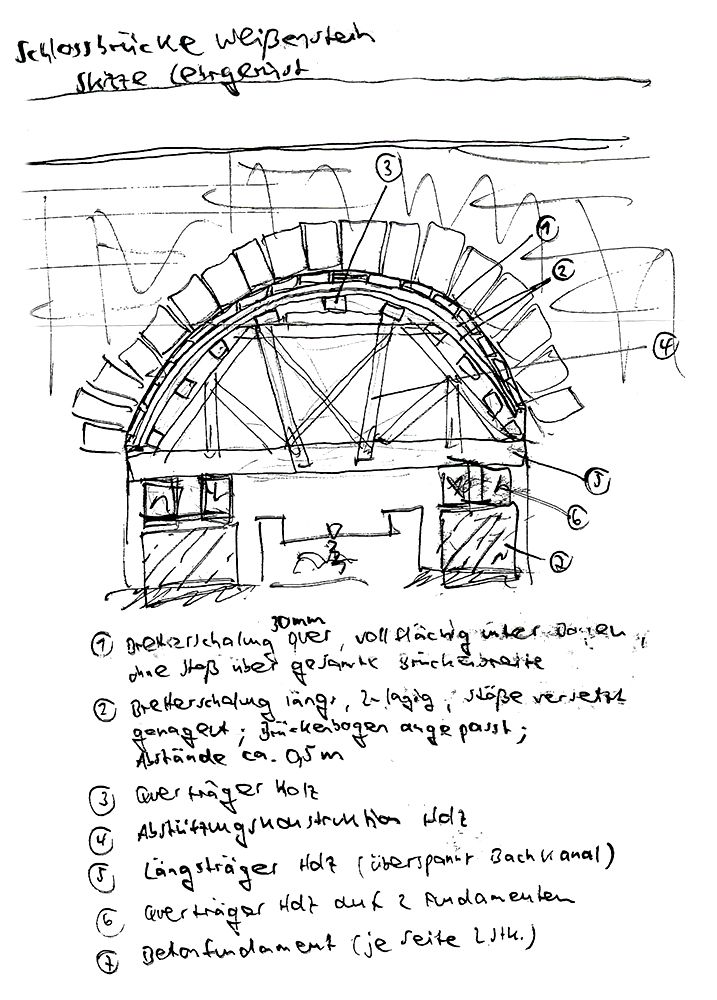 Schlossbrücke Weißenstein
Skizze Lehrgerüst
3
1
2
4
5
6
7
① Bretterschalung 30mm quer, vollflächig unter Bogen,
ohne Stoß über gesamte Brückenbreite
② Bretterschalung längs, 2-lagig, Stöße versetzt
genagelt; Brückenbogen angepasst;
Abstände ca. 0,5 m
③ Querträger Holz
④ Abstützungskonstruktion Holz
⑤ Längsträger Holz (überspannt Bachkanal)
⑥ Querträger Holz auf 2 Fundamenten
⑦ Betonfundament (je Seite 2 Stk.)